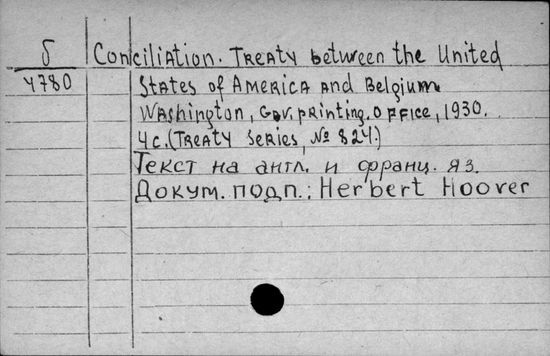 б Conciliation. Treaty between the United
4780 States of America and Belgium
Washington, Gov. printing. office, 1930.
4c. (Treaty Series, № 824.)
Текст на англ. и франц. яз.
Докум. подп.: Herbert Hoover